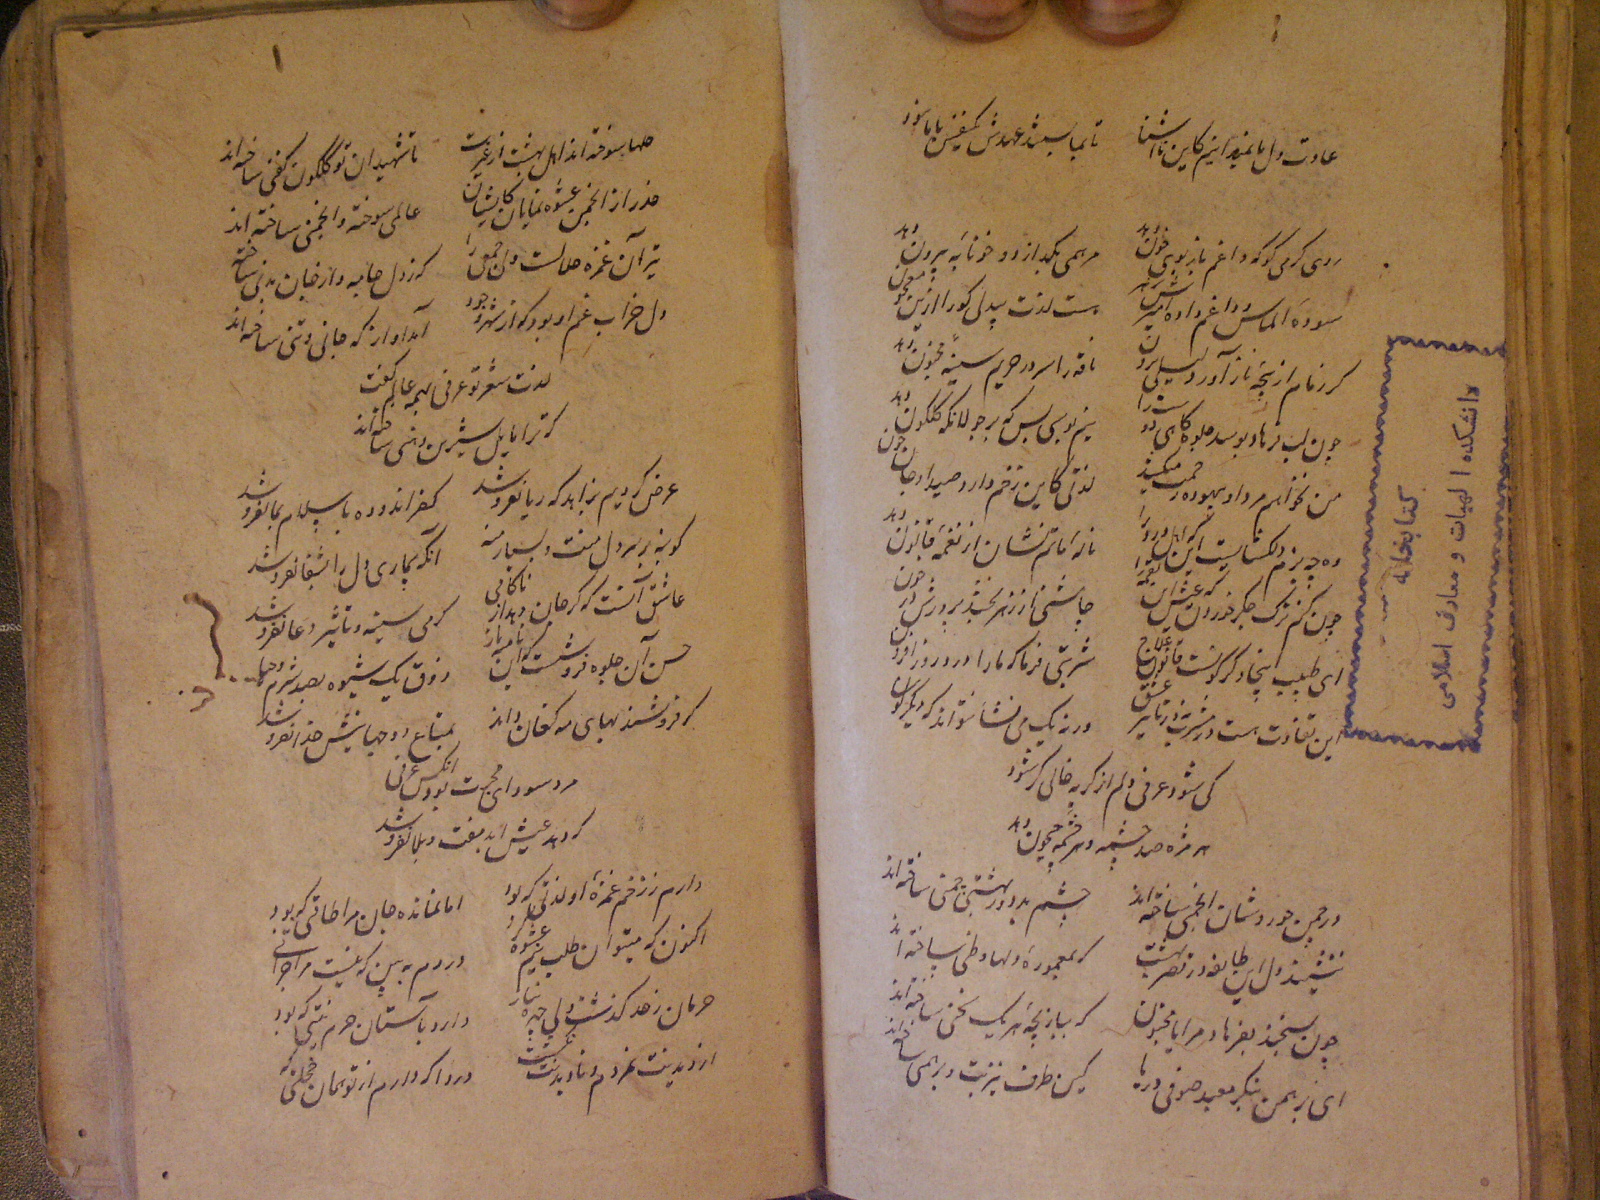 عادت دل ما نمیدانیم کاین ناآشنا
تا نیاساید عهدش کفیش ما سوزد
روی گرمی کو که داغم باز بوی خون دهد
مرهمی بگدازد و خونابه بیرون دهد
سوده الماس و داغم داده
هست لذت بیدلی کو را ازین معجون دهد
گر زمام از پنجه ناز آورد لیلی برون
ناقه را سر در حریم سینه مجنون دهد
چون لب فرهاد بوسد جلوه گاهی دوست را
نیم بوسی بس که بر جولانگه گلگون دهد
من نخواهم مرد او بیهوده زحمت میکشد
لذتی کاین زخم دارد صید او جان چون دهد
وه چه بزم دلگشایست این که اهل درد را
ناله ماتم نشان از نغمه قانون دهد
چون کنم ترک جگر خوردن که عشق این لقمه را
چاشنی ناز زهر بخشد پرورش در خون دهد
ای طبیب اینجا دگرگونست قانون علاج
شربتی فرما که ما را درد روز افزون دهد
این تفاوت هست در شربت ز تاثیر عشق
ورنه یک می نشاء نتواند که دیگرگون دهد
کی شود عرفی دلم از گریه خالی گر شود
هر مژه صد چشمه و هر چشمه جیحون دهد
در چمن حور وشان انجمنی ساخته اند
چشم بد دور بهشتی چمنی ساخته اند
ننشیند دل این طایفه در قصر بهشت
که بمعموره دلها وطنی ساخته اند
چون بسنجند بفرهاد مرا یا مجنون
که ببازیچه هر یک سخنی ساخته اند
ای برهمن بنگر معبد صوفی در ما
کین طرف نیز بت و برهمنی ساخته اند
دانشکده الهیات و معارف اسلامی
کتابخانه
جلها سوخته اند اهل بهشت از غیرت
تا شهیدان تو گلگون کفنی ساخته اند
حذر از انجمن عشوه نمایان کایشان
عالمی سوخته و انجمنی ساخته اند
تیر آن غمزه حلالست دل جمعی را
که ز دل جامه و از جان بدنی ساخته
دل خراب غم او بود که از شهر وجود
آمد آواز که جانی و تنی ساخته اند
لذت شعر تو عرفی بهمه عالم گفت
که ترا مایل شیرین دهنی ساخته اند
عرض کردیم بزاهد که ریا نفروشد
کفر اندوده باسلام بما نفروشد
گو بنه بر سر دل منت و بسیار منه
آنکه بیماری دل را بشفا نفروشد
عاشق آنست که گر جان دهد از ناکامی
گرمی سینه و تاثیر دعا نفروشد
حسن آن جلوه فروشست که این نام نیاز
ذوق یک شیوه بصد شرم و حیا
گر فروشند بهای مه کنعان داند
بمتاع دو جهانیش خدا نفروشد
مرد سودای محبت بود آنکس عرفی
که دهد عیش ابد مفت و بلا نفروشد
دارم ز زخم غمزه او لذتی که بود
اما نمانده جان مرا طاقتی که بود
اکنون که میتوان طلب نیم عشوه کرد
دردم به بین که نیست مرا جراتی
حرمان ز حد گذشت ولی چهره نیاز
دارد بآستان حرم نسبتی که بود
از دیدنت نمردم و نادیدنت بکشت
دردا که دارم از تو همان خجلتی که